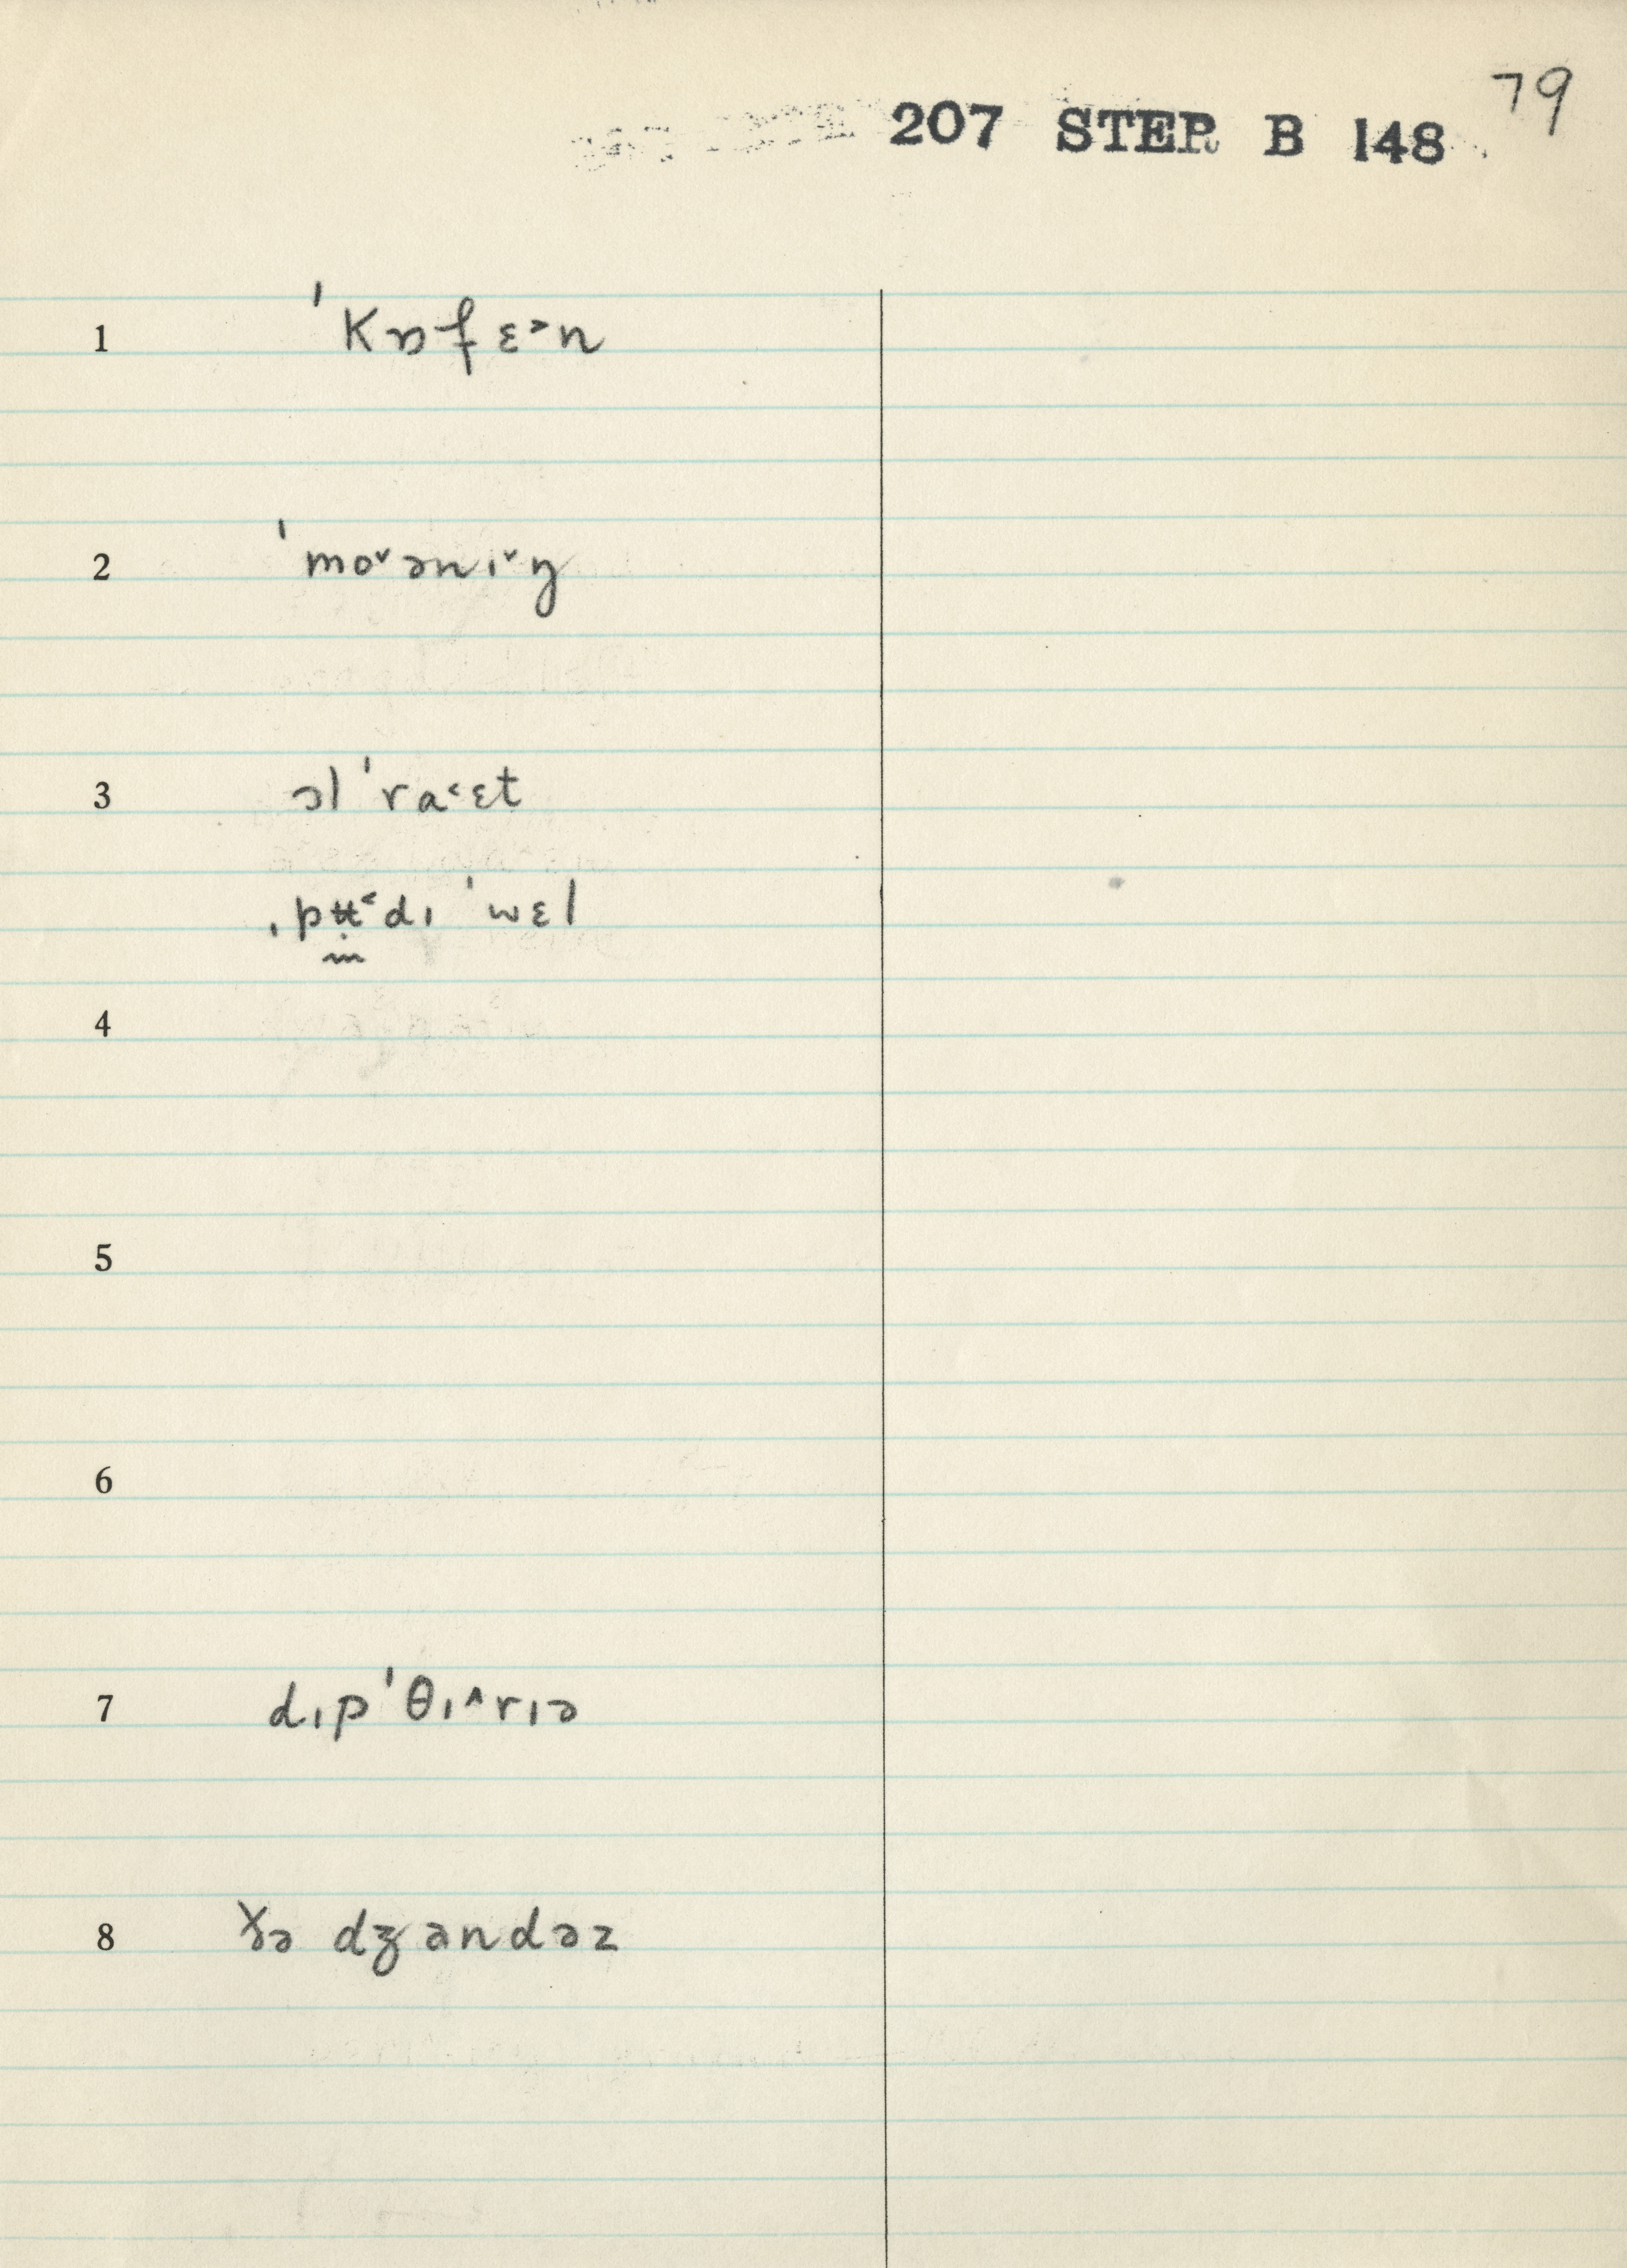 79
207 STEP B 148
1 ˈkɒfɛ˃n
2 ˈmo˅ənɪ˅ŋ
3 ɔl ˈra˂ɛt
ˌpʊ̈˂dɪ ˈwɛl
4
5
6
7 dɪpˈθɪ˄rɪə
8 ɣə dʒandəz